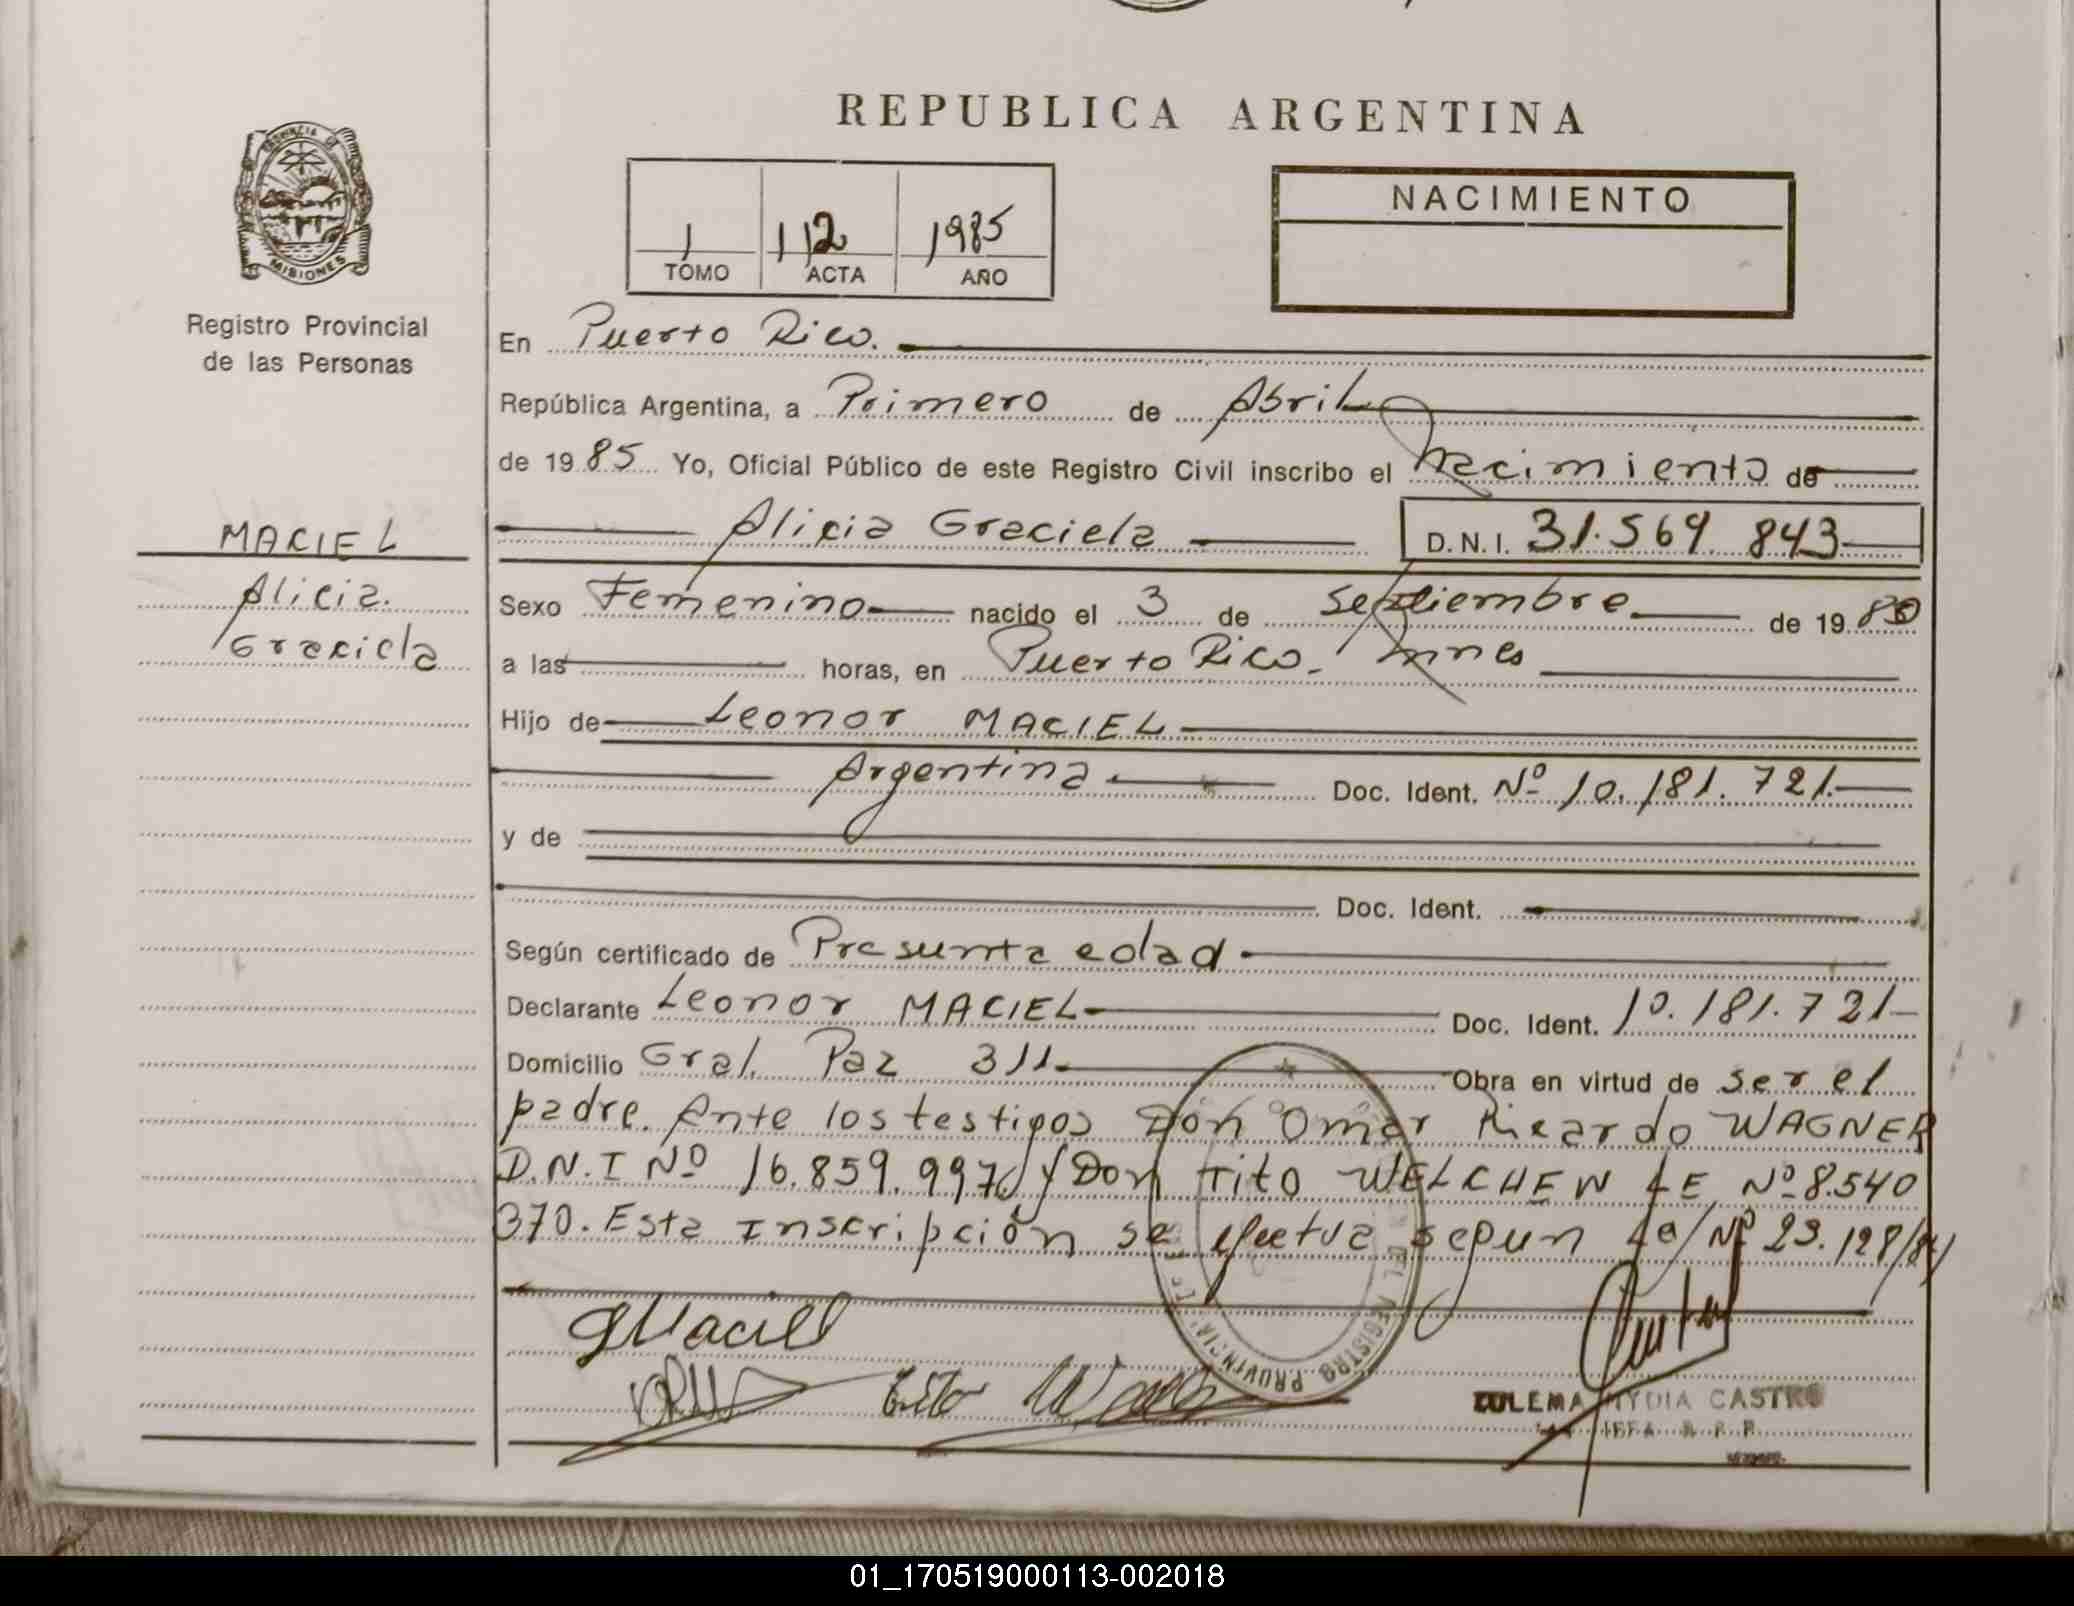 REPUBLICA ARGENTINA
PROVINCIA DE
MISIONES
Registro Provincial
de las Personas
MACIEL
Alicia.
Graciela
1 112 1985
TOMO ACTA AÑO
NACIMIENTO
En Puerto Rico.
República Argentina, a Primero de Abril
de 1985 Yo, Oficial Público de este Registro Civil inscribo el Nacimiento de
Alicia Graciela D.N.I. 31.569 843
Sexo Femenino nacido el 3 de septiembre de 1980
a las horas, en Puerto Rico- Mnes
Hijo de Leonor MACIEL
Argentina Doc. Ident. Nº 10.181.721.
y de
Doc. Ident.
Según certificado de Presunta edad
Declarante Leonor MACIEL Doc. Ident. 10.181.721
Domicilio Gral. Paz 311. Obra en virtud de ser el
padre. Ante los testigos Don Omar Ricardo WAGNER
D.N.I Nº 16.859.997 y Don Tito WELCHEN LE Nº 8.540
370. Esta Inscripción se efectua segun Le/Nº 23.128/84
Maciel
Tito
ZULEMA NYDIA CASTRO
REGISTRO PROVINCIAL
01_170519000113-002018